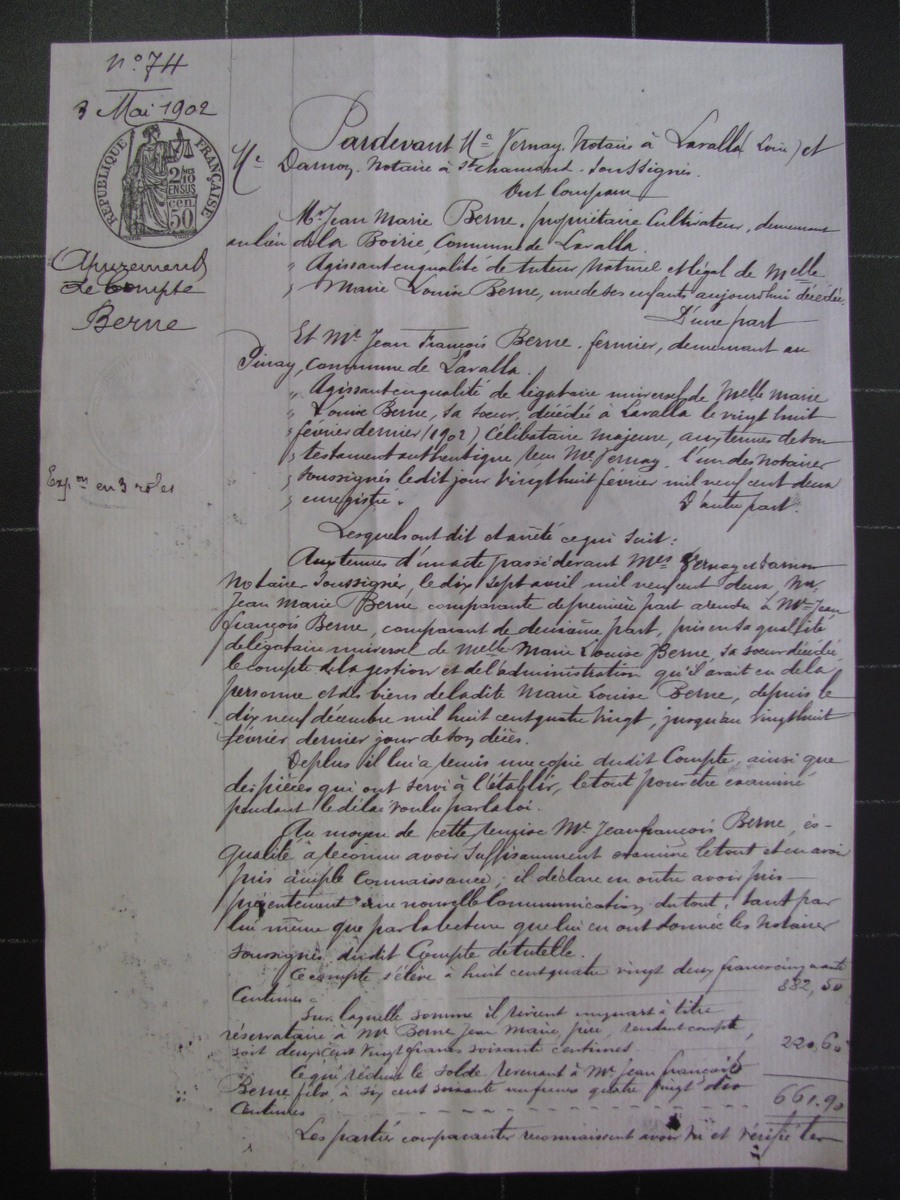 N° 74
3 Mai 1902
RÉPUBLIQUE FRANÇAISE
2/10
EN SUS
cen.
50
Apurement
de Compte
Berne
Expon en 3 rôles
Pardevant Me Vernay, Notaire à Lavalla (Loire) et
Me Darnon, Notaire à St Chamond, soussignés.
Ont Comparu
Mr Jean Marie Berne, propriétaire Cultivateur, demeurant
au lieu de la Boirie, Commune de Lavalla.
" Agissant en qualité de tuteur naturel et légal de Melle
" Marie Louise Berne, une de ses enfants aujourd'hui décédée.
D'une part
Et Mr Jean François Berne, fermier, demeurant au
Pinay, commune de Lavalla.
" Agissant en qualité de légataire universel de Melle Marie
" Louise Berne, sa soeur, décédée à Lavalla le vingt huit
" février dernier (1902) Célibataire majeure, aux termes de son
" testament authentique, reçu Me Vernay, l'un des Notaires
" soussignés le dit jour vingt huit février mil neuf cent deux
" enregistré.
D'autre part.
Lesquels ont dit et arrêté ce qui suit:
Aux termes d'un acte passé devant Mes Vernay et Darnon
Notaires soussignés, le dix sept avril mil neuf cent deux, Mr
Jean Marie Berne, comparante de première part a rendu à Mr Jean
François Berne, comparant de deuxième part, pris en sa qualité
de légataire universel de Melle Marie Louise Berne, sa soeur décédée,
le compte de la gestion et de l'administration qu'il avait eu de la
personne et des biens de la dite Marie Louise Berne, depuis le
dix neuf décembre mil huit cent quatre vingt, jusqu'au vingt huit
février dernier jour de son décès.
De plus il lui a remis une copie du dit Compte, ainsi que
des pièces qui ont servi à l'établir, le tout pour être examiné
pendant le délai voulu par la loi.
Au moyen de cette remise Mr Jean François Berne, ès-
qualité a reconnu avoir suffisamment examiné le tout et en avoir
pris ample connaissance; il déclare en outre avoir pris
présentement une nouvelle communication du tout, tant par
lui même que par la lecture que lui en ont donnée les Notaires
soussignés du dit Compte de tutelle.
Ce compte s'élève à huit cent quatre vingt deux francs cinquante
Centimes 882,50
Sur laquelle somme il revient un quart à titre
réservataire à Mr Berne Jean Marie, père, rendant compte,
soit deux cent vingt francs soixante centimes 220,60
Ce qui réduit le solde revenant à Mr Jean François
Berne fils, à six cent soixante un francs quatre vingt dix
Centimes 661.90
Les parties comparantes reconnaissent avoir vu et vérifié